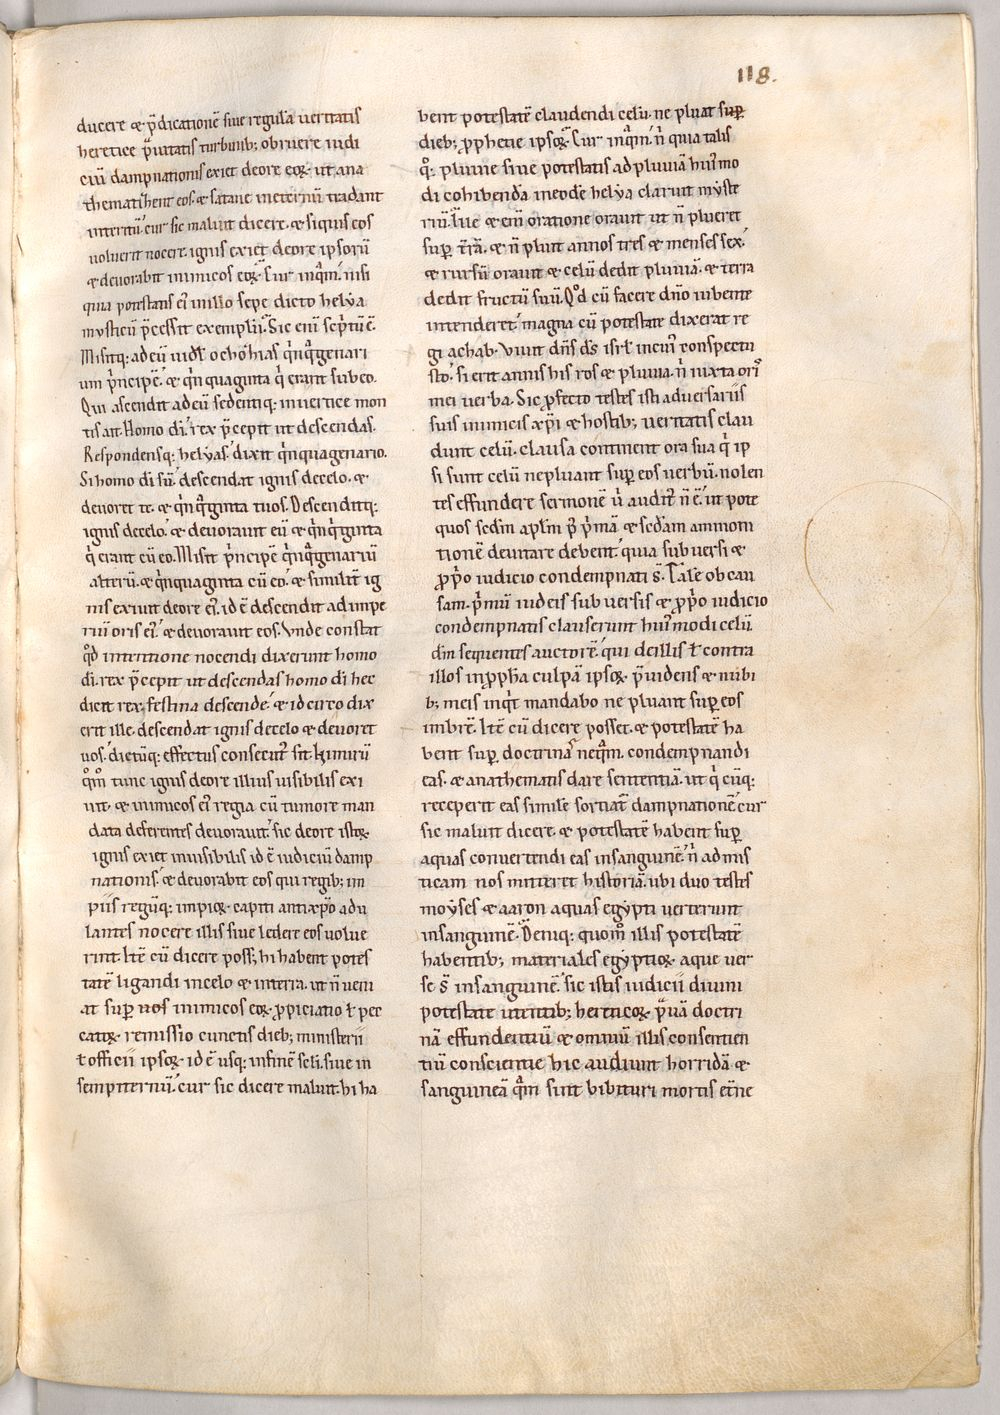 118.
ducere & p̄dicationē siue regulā ueritatis
heretice p̄uitatis turbinib; obruere iudi
ciū dampnationis exiet de ore eoꝝ. ut ana
thematizent eos. & satane in eternū tradant
interitū. cur sic maluit dicere. & siquis eos
uoluerit nocere. ignis exiet de ore ipsorū
& deuorabit inimicos eoꝝ. Cur inqͣm. nisi
quia potestatis ei' in illo sepe dicto helya
mysticū p̄cessit exemplū. Sic enī scptū ē.
Misitq; ad eū iudͥ ochozias qͥnqͣgenari
um pͥncipē. & qͥnquaginta qͥ erant sub eo.
Qui ascendit ad eū sedentiq; in uertice mon
tis ait. Homo dī. rex p̄cepit ut descendas.
Respondensq; helyas. dixit qͥnquagenario.
Si homo dī sū. descendat ignis de celo. &
deuoret te. & qͥnqͣginta tuos. Descenditq;
ignis de celo. & deuorauit eū & qͥnqͣginta
qͥ erant cū eo. Misit pͥncipē qͥnqͣgenariū
alterū. & qͥnquaginta cū eo. & similit̄ ig
nis exiuit de ore ei'. id ē descendit ad impe
riū oris ei'. & deuorauit eos. Vnde constat
qͦd intentione nocendi dixerint homo
dī. rex p̄cepit ut descendas homo dī hec
dicit rex. festina descende. & idcirco dix
erit ille. descendat ignis de celo & deuoret
uos. dictūq; effectus consecut' sit. Nimirū
qͦm̄ tunc ignis de ore illius uisibilis exi
uit. & inimicos ei' regia cū tumore man
data deferentes deuorauit. sic de ore istoꝝ
ignis exiet inuisibilis id ē iudiciū damp
nationis. & deuorabit eos qui regib; im
piis regūq; impioꝝ capiti antixp̄o adu
lantes nocere illis siue ledere eos uolue
rint. Itē cū dicere poss; hi habent potes
tatē ligandi in celo & in terra. ut n̄ ueni
at sup̄ nos inimicos eoꝝ. ꝓpiciatio ł pec
catoꝝ remissio cunctis dieb; ministerii
ł officii ipsoꝝ. id ē usq; in finē scłi. siue in
sempiternū. cur sic dicere maluit. hi ha
bent potestatē claudendi celū. ne pluat sup̄
dieb; ꝓphetie ipsoꝝ. Cur inqͣm. n̄ quia talis
qͦ. pluuie siue potestatis ad pluuiā hui'mo
di cohibendā in eodē helya claruit myste
riū. Ille & enī oratione orauit ut n̄ plueret
sup̄ t̄rā. & n̄ pluit annos tres & menses sex.
& rursū orauit & celū dedit pluuiā. & terra
dedit fructū suū. Qd̄ cū facere dn̄o iubente
intenderet. magna cū potestate dixerat re
gi achab. Viuit dn̄s ds̄ isrł in cui' conspectu
sto. si erit annis his ros & pluuia. n̄ iuxta oris
mei uerba. Sic ꝓfecto testes isti aduersariis
suis inimicis xp̄i & hostib; ueritatis clau
dunt celū. clausa continent ora sua qͥ ip
si sunt celū ne pluant sup̄ eos uerbū. nolen
tes effundere sermonē uͥ audit' n̄ ē. ut pote
quos scd̄m apłm p̄ pͥmā & scd̄am ammoni
tionē deuitare debent. quia subuersi &
ꝓpͥo iudicio condempnati s̄. Tale ob cau
sam. pͥmū iudeis subuersis & ꝓpͥo iudicio
condempnatis clauserunt hui'modi celū.
dn̄m sequentes auctorē. qui de illis ł contra
illos in ꝓph̄a culpā ipsoꝝ p̄uidens & nubi
b; meis inqͥt mandabo ne pluant sup̄ eos
imbrē. Itē cū dicere posset. & potestatē ha
bent sup̄ doctrinā neqͣm. condempnandi
eas. & anathematis dare sententiā. ut qͥcūq;
receperit eas simile sortiat̄ dampnationē. cur
sic maluit dicere. & potestatē habent sup̄
aquas conuertendi eas in sanguinē. n̄ ad mis
ticam nos mitteret historiā. ubi duo testes
moyses & aaron aquas egypti uerterunt
in sanguinē. Deniq; quom̄ illis potestatē
habentib; materiales egyptioꝝ aque uer
se s̄ in sanguinē. sic istis iudicii diuini
potestate utentib; hereticoꝝ p̄uā doctri
nā effundentiū & omniū illis consentien
tiū conscientie hic audiunt horridā &
sanguineā qͣm sunt bibituri mortis et̄ne